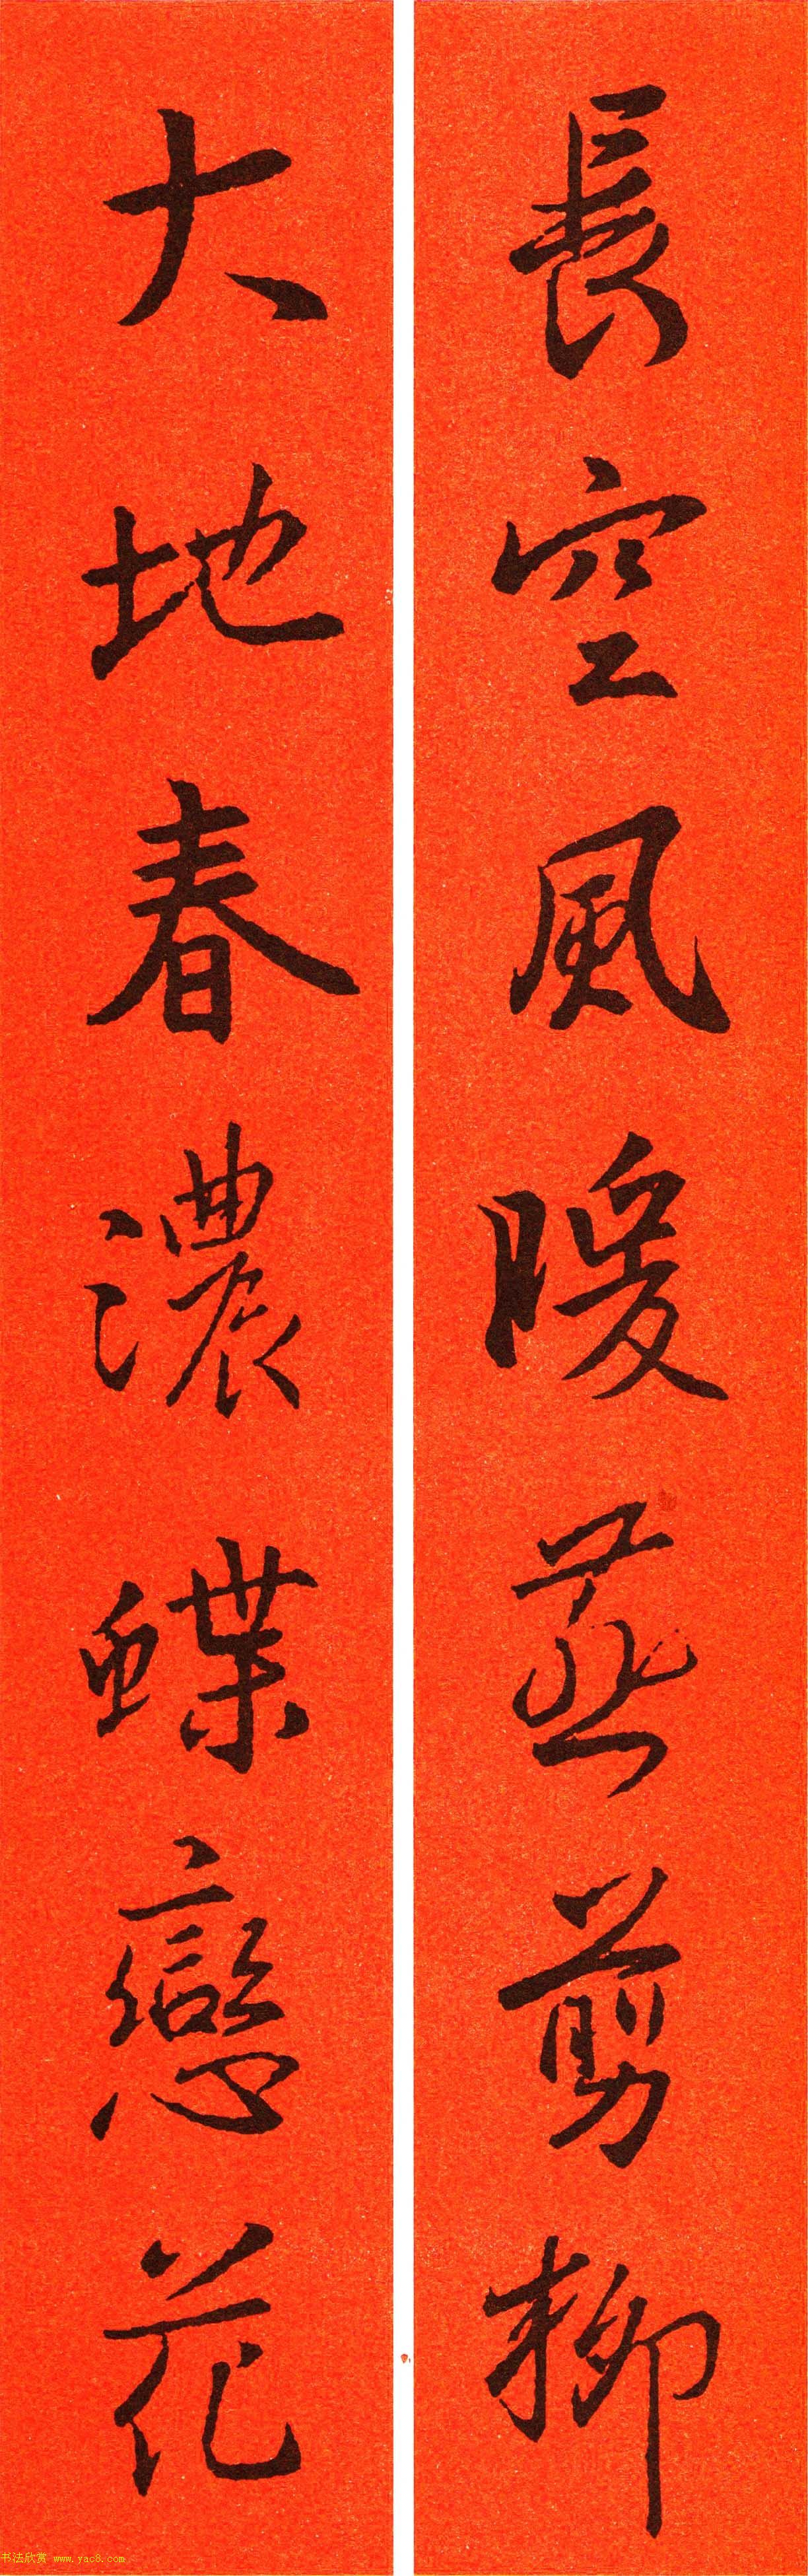 長空風暖燕剪柳
大地春濃蝶戀花
书法欣赏 www.yac8.com